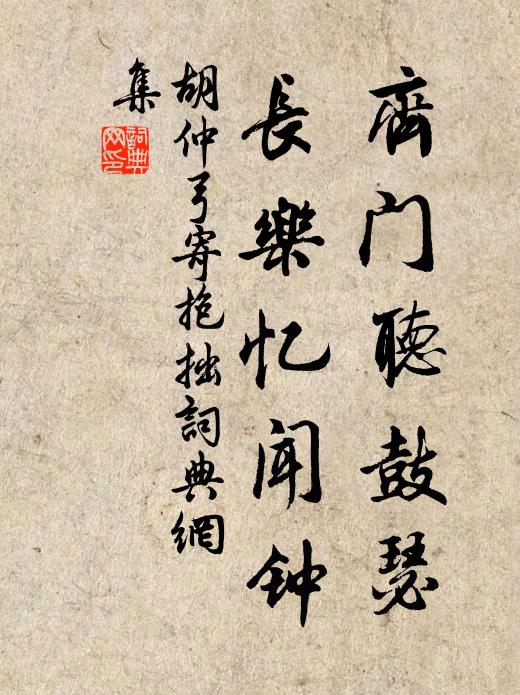 齊门聽鼓瑟
長樂忆闻钟
胡仲弓寄抱拙詞典網
集
詞典網印